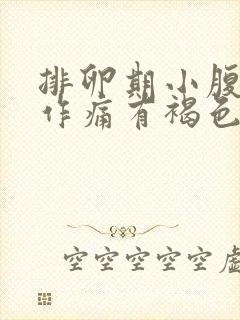 排卵期小腹
作痛有褐色
空空空空空虚